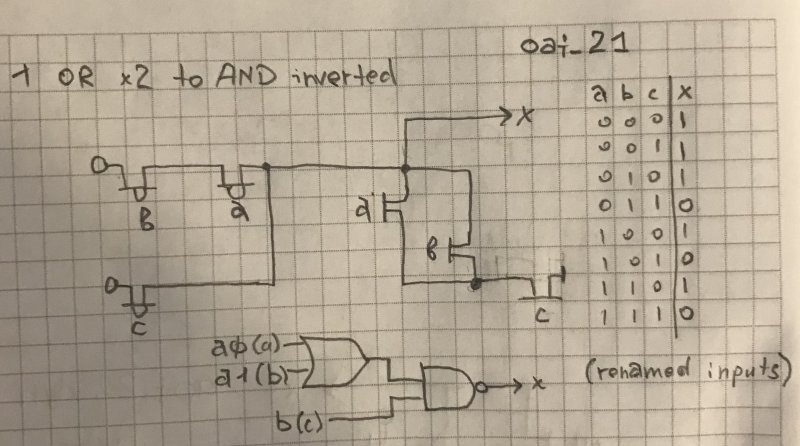 oai_21
1 OR x2 to AND inverted
a b c x
0 0 0 1
0 0 1 1
0 1 0 1
0 1 1 0
1 0 0 1
1 0 1 0
1 1 0 1
1 1 1 0
x
B
a
a
B
c
c
aϕ(a)
a1(b)
x
(renamed inputs)
b(c)